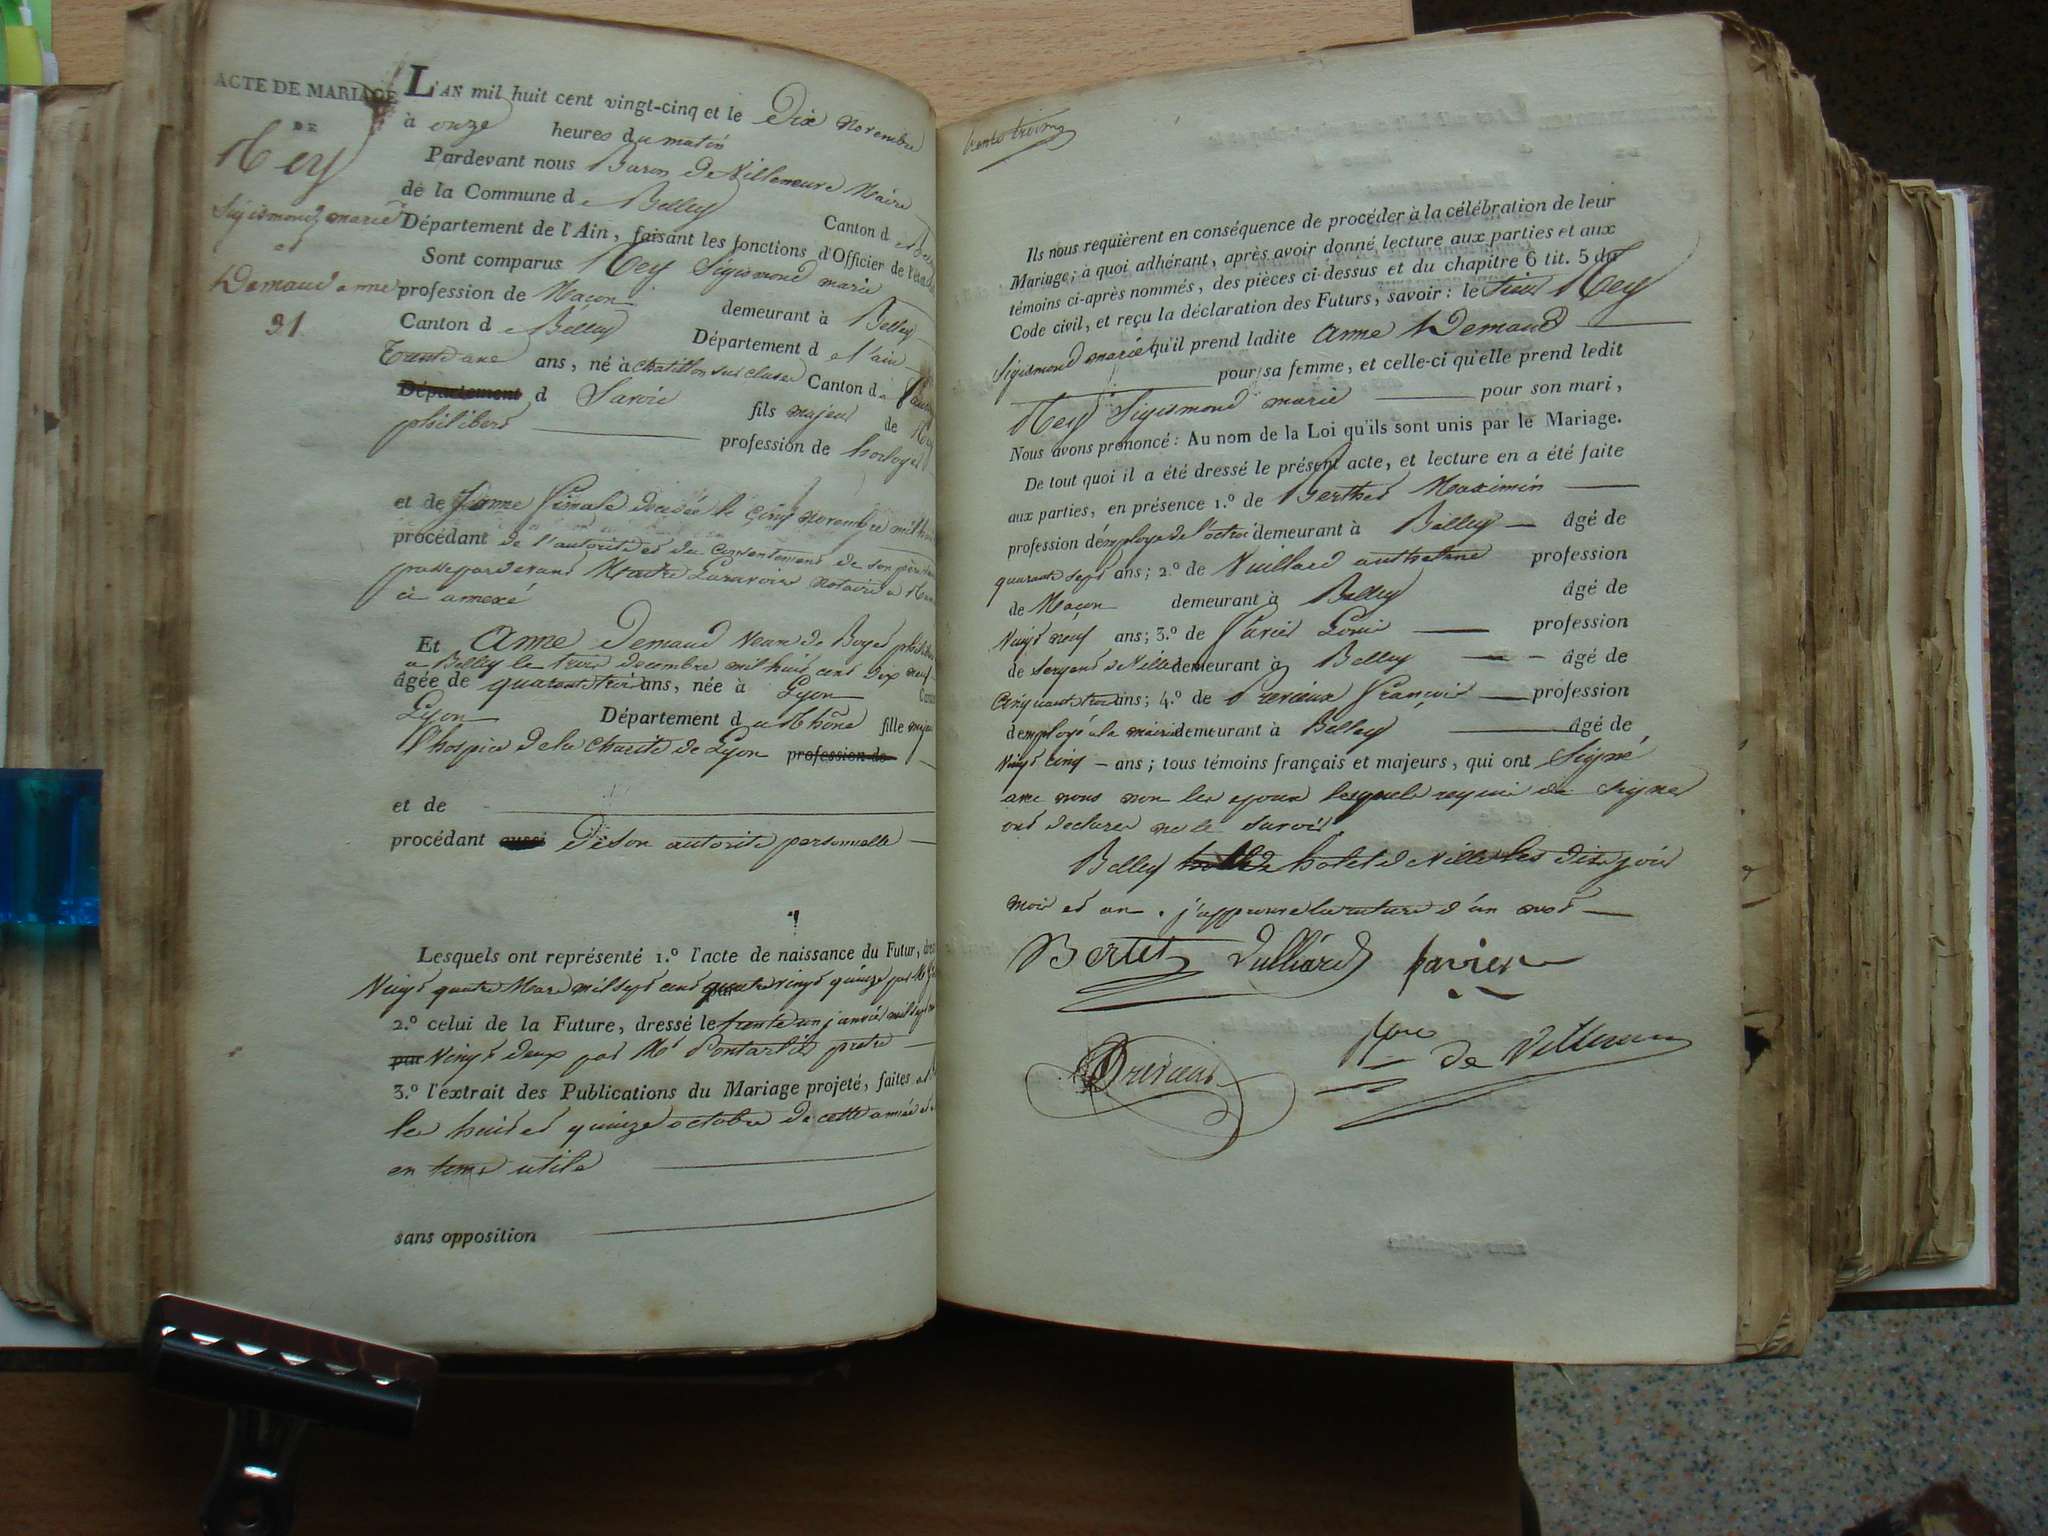 ACTE DE MARIAGE
DE
Ney
Sigismond marie
et
Demaud anne
31
L'AN mil huit cent vingt-cinq et le Dix Novembre
à onze heures du matin
Pardevant nous Baron De Villeneuve Maire
de la Commune de Belley Canton de
Département de l'Ain, faisant les fonctions d'Officier de l'état
Sont comparus Ney Sigismond marie
profession de Maçon demeurant à Belley
Canton de Belley Département de l'ain
Trente ans, né à chatillon sur cluses Canton de
Département d Savoie fils majeur de Ney
philibert profession de horloger
et de Jeanne décédée le cinq novembre mil
procédant de l'autorité et du consentement de son père
passé pardevant Maitre notaire a
ci annexé
Et Anne Demaud veuve de Boyed
a Belley le trois decembre mil huit cent dix neuf
âgée de quarante trois ans, née à Lyon
Lyon Département du Rhône fille majeure
l'hospice de la Charité de Lyon profession de
et de
procédant aussi De son autorité personnelle
Lesquels ont représenté 1.º l'acte de naissance du Futur,
Vingt quatre Mars mil sept cent quatre vingt quinze par Mr
2.º celui de la Future, dressé le trente un janvier mil sept
par Vingt deux par Mr prêtre
3.º l'extrait des Publications du Mariage projeté, faites
les huit et quinze octobre de cette année
en tems utile
sans opposition
trente trois
Ils nous requièrent en conséquence de procéder à la célébration de leur
Mariage; à quoi adhérant, après avoir donné lecture aux parties et aux
témoins ci-après nommés, des pièces ci-dessus et du chapitre 6 tit. 5 du
Code civil, et reçu la déclaration des Futurs, savoir: le sieur Ney
Sigismond marie qu'il prend ladite anne Demaud
pour sa femme, et celle-ci qu'elle prend ledit
Ney Sigismond marie pour son mari,
Nous avons prononcé: Au nom de la Loi qu'ils sont unis par le Mariage.
De tout quoi il a été dressé le présent acte, et lecture en a été faite
aux parties, en présence 1.º de Berthet Maximin
profession d'employé de l'octroi demeurant à Belley âgé de
quarante sept ans; 2.º de Vuillard anthelme profession
de Maçon demeurant à Belley âgé de
Vingt neuf ans; 3.º de Louis profession
de sergent de Ville demeurant à Belley âgé de
Cinquante trois ans; 4.º de François profession
d'employé à la mairie demeurant à Belley âgé de
Vingt cinq ans; tous témoins français et majeurs, qui ont Signé
avec nous non les epoux lesquels requis de signer
ont declarer ne le savoir
Belley hotel de Ville les dix jour
mois et an. j'approuve la rature d'un mot
Bertet Vulliard
de Villeneuve
sans opposition